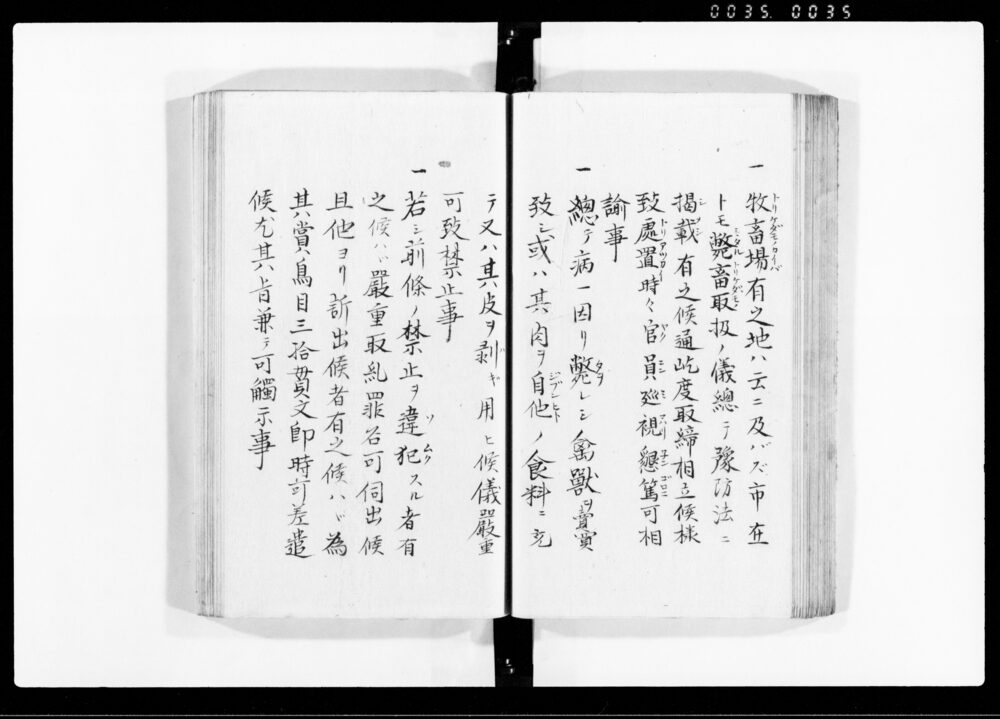 0035. 0035
一 牧畜場有之地ハ云ニ及バズ市在
トモ斃畜取扱ノ儀總テ豫防法ニ
揭載有之候通屹度取締相立候樣
致處置時々官員廵視懇篤可相
諭事
一 總テ病ニ因リ斃レシノ禽獸ヲ賣買
致シ或ハ其肉ヲ自他ノ食料ニ充
テ又ハ其皮ヲ剥ギ用ヒ候儀嚴重
可致禁止事
一 若シ前條ノ禁止ヲ違犯スル者有
之候ハヾ嚴重取糺罪名可伺出候
且他ヨリ訴出候者有之候ハヾ為
其賞鳥目三拾貫文即時可差遣
候尤其旨兼テ可觸示事